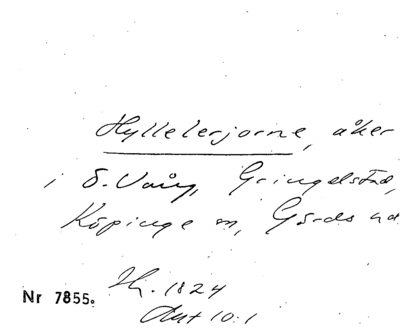 Hyllelerjorne, åker
i Ö. Vång, Gringelstad,
Köpinge sn, Gärds hd
Nr 7855.
1824
Akt 10:1